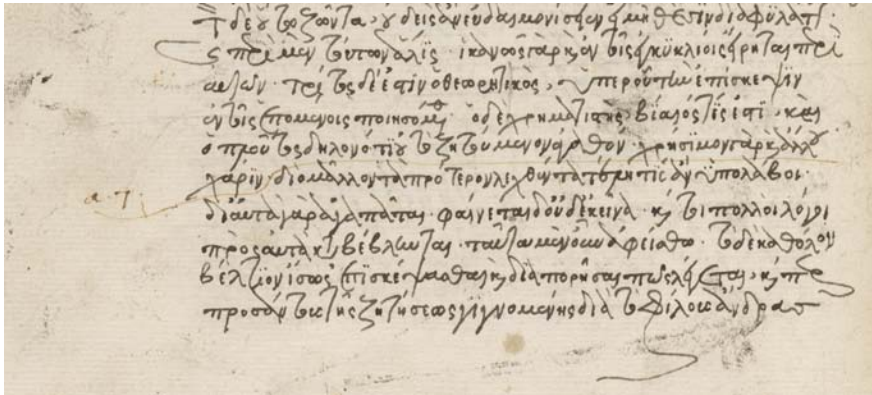 τ δὲ οὕτω ζῶντα, οὐδεὶς ἂν εὐδαιμονίσειεν εἰ μὴ θέσιν διαφυλάττ
καὶ περὶ μὲν τούτων ἅλις· ἱκανῶς γὰρ καὶ ἐν τοῖς ἐγκυκλίοις εἴρηται περὶ
αὐτῶν· τρίτος δέ ἐστιν ὁ θεωρητικὸς, ὑπὲρ οὗ τὴν ἐπίσκεψιν
ἐν τοῖς ἑπομένοις ποιησόμεθα· ὁ δὲ χρηματιστὴς, βίαιός τίς ἐστί· καὶ
ὁ πλοῦτος δῆλον ὅτι οὐ τὸ ζητούμενον ἀγαθόν· χρήσιμον γὰρ καὶ ἄλλου
χάριν· διὸ μᾶλλον τὰ πρότερον λεχθέντα τέλη τὶς ἂν ὑπολάβοι·
α. 7.
δι' αὐτὰ γὰρ ἀγαπᾶται· φαίνεται δ' οὐδ' ἐκεῖνα· καίτοι πολλοὶ λόγοι
πρὸς αὐτὰ καταβέβληνται· ταῦτα μὲν οὖν ἀφείσθω· τὸ δὲ καθόλου
βέλτιον ἴσως ἐπισκέψασθαι καὶ διαπορῆσαι πῶς λέγεται, καίπερ
προσάντους τῆς ζητήσεως γιγνομένης διὰ τὸ φίλους ἄνδρας